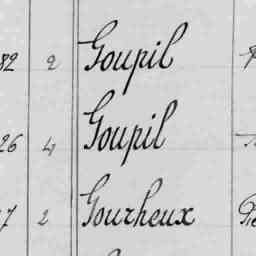 82 2 Goupil
26 4 Goupil
7 2 Gourheux